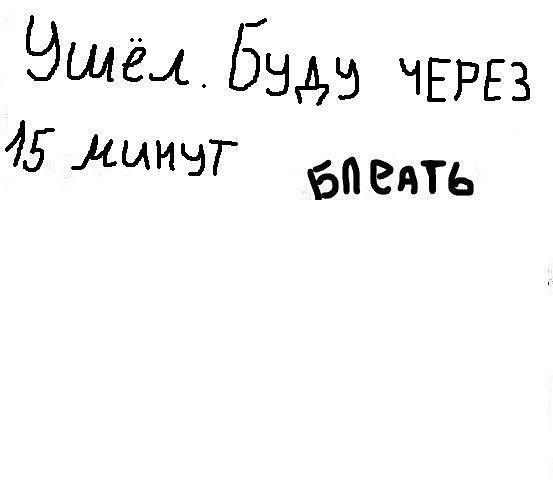 Ушёл. Буду ЧЕРЕЗ
15 минут БЛЕАТЬ